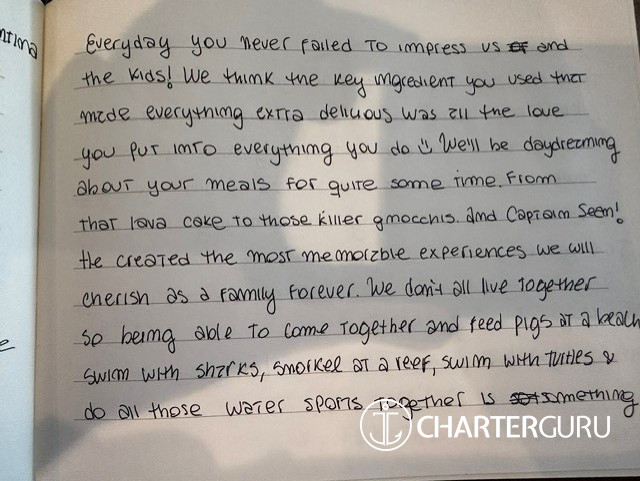 ntima
Everyday you never failed to impress us and
the kids! We think the key ingredient you used that
made everything extra delicious was all the love
you put into everything you do We'll be daydreaming
about your meals for quite some time. From
that lava cake to those killer gnocchis. and Captain Seen!
He created the most memorable experiences we will
cherish as a family forever. We don't all live together
so being able to come together and feed pigs at a beach
swim with sharks, snorkel at a reef, swim with turtles &
do all those water sports together is something
CHARTERGURU